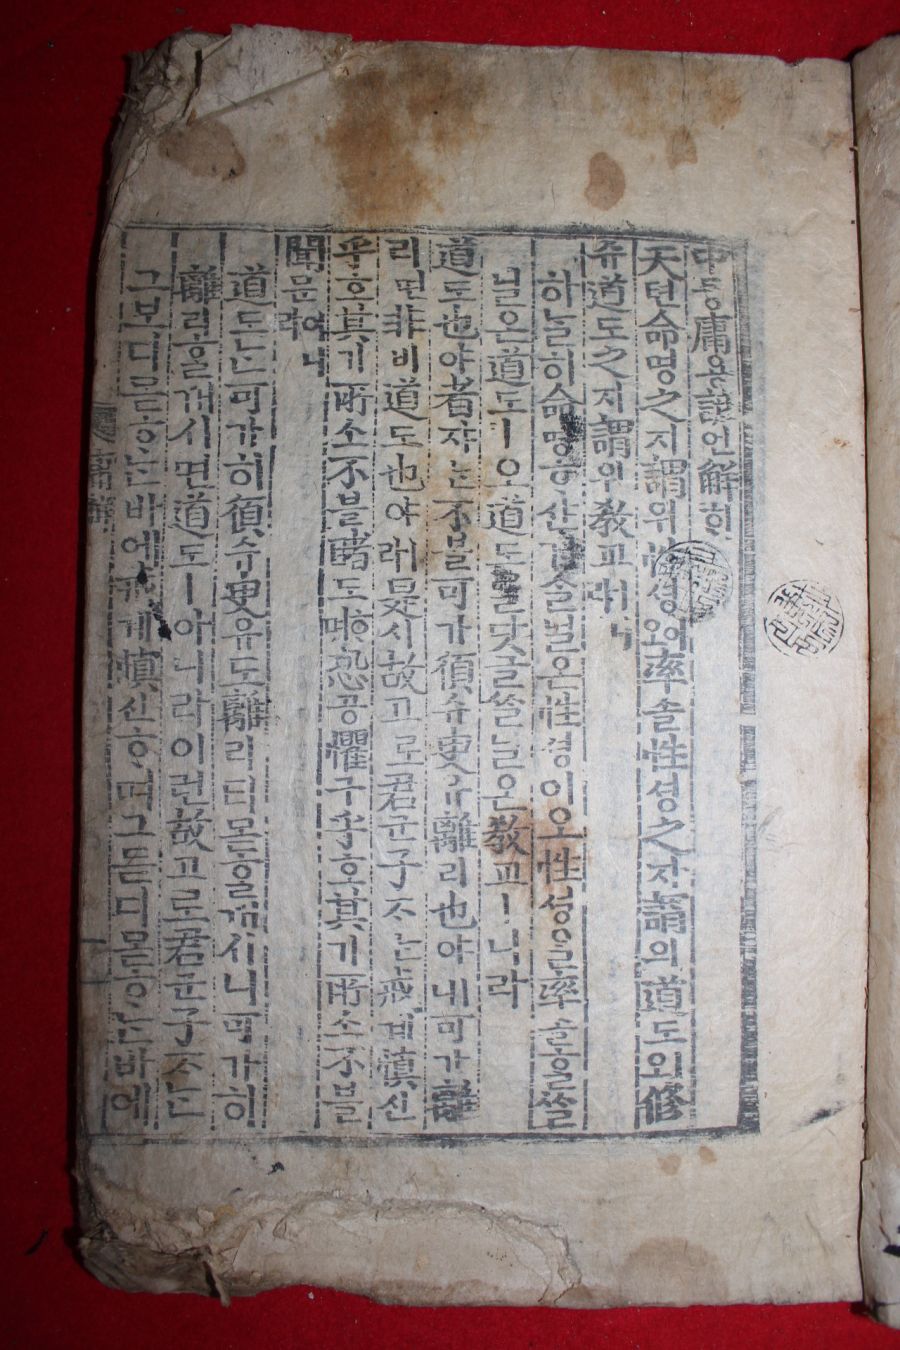 中듕庸용諺언解ᄒᆡ
天텬命명之지謂위性셩이오率솔性셩之지謂위道도ㅣ오修
슈道도之지謂위敎교ㅣ니라
하ᄂᆞᆯ히命명ᄒᆞ샨거슬닐온性셩이오性셩을率솔ᄒᆞᆯᄊᆞᆯ
닐온道도ㅣ오道도를닷글쓸닐온敎교ㅣ니라
道도也야者쟈ᄂᆞᆫ不블可가須슈臾유離리也야ㅣ니可가離
리면非비道도也야ㅣ라是시故고로君군子ᄌᆞᄂᆞᆫ戒계愼신
乎호其기所소不블睹도ᄒᆞ며恐공懼구乎호其기所소不블
聞문이니라
道도ᄂᆞᆫ可가히須슈臾유도離리티몯ᄒᆞᆯᄭᅥ시니可가히
離리ᄒᆞᆯᄭᅥ시면道도ㅣ아니라이런故고로君군子ᄌᆞᄂᆞᆫ
그보디몯ᄒᆞᄂᆞᆫ바에戒계愼신ᄒᆞ며그듣디몯ᄒᆞᄂᆞᆫ바에